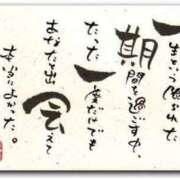 一生という限られた
期間を過ごす中、
たった一度だけでも
あなたに出会えて
本当によかった。